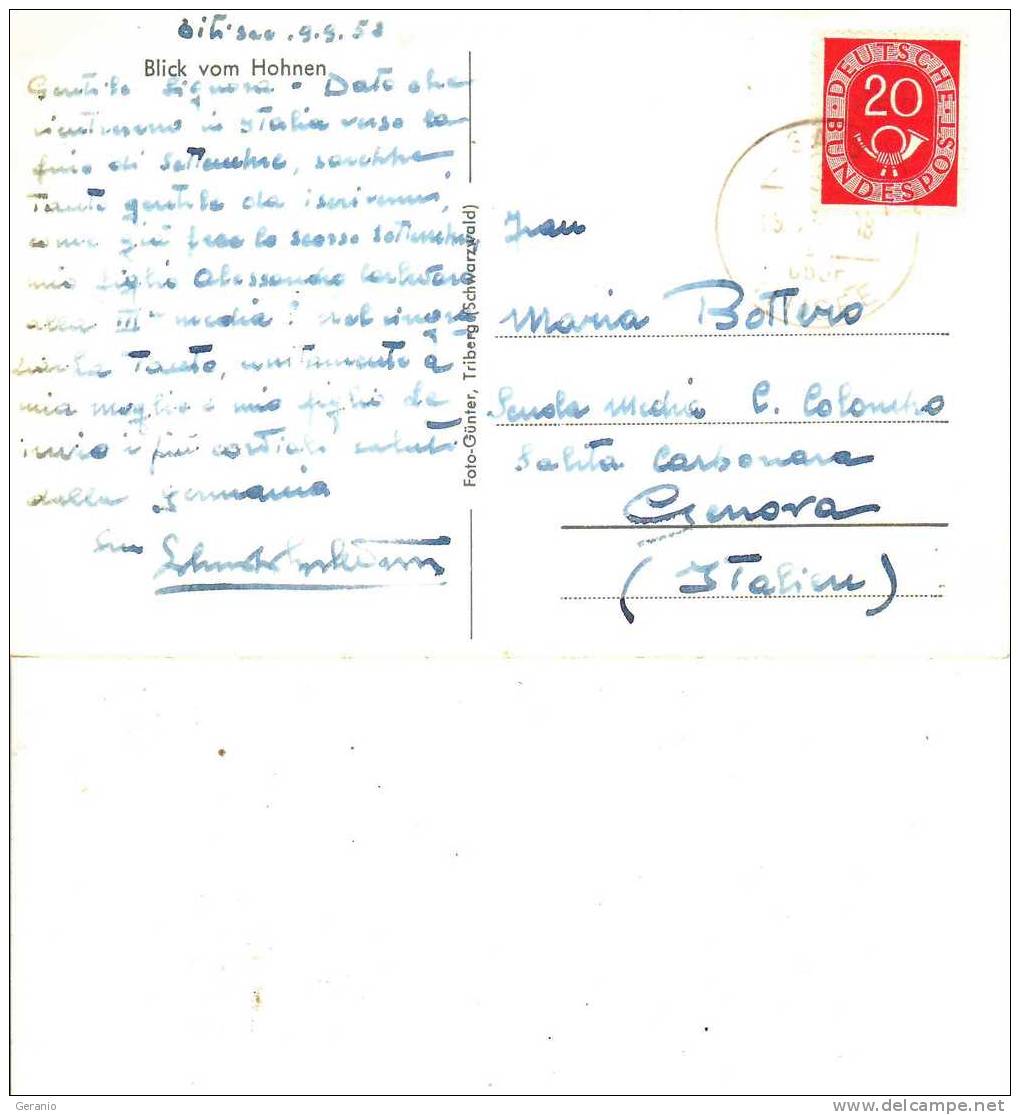 9.9.53
Blick vom Hohnen
Gentile Signora - Dato che
rientreremo in Italia verso la
fine di Settembre, sarebbe
tanto gentile da iscrivermi,
come già fece lo scorso settembre
mio figlio Alessandro
alla III media? Nel ringra
ziarla tanto, unitamente a
mia moglie e mio figlio Le
invio i più cordiali saluti
dalla Germania
Suo
Foto-Günter, Triberg (Schwarzwald)
DEUTSCHE BUNDESPOST
20
Frau
Maria Bottero
Scuola Media C. Colombo
Salita Carbonara
Genova
(Italien)
Geranio
delcampe.net